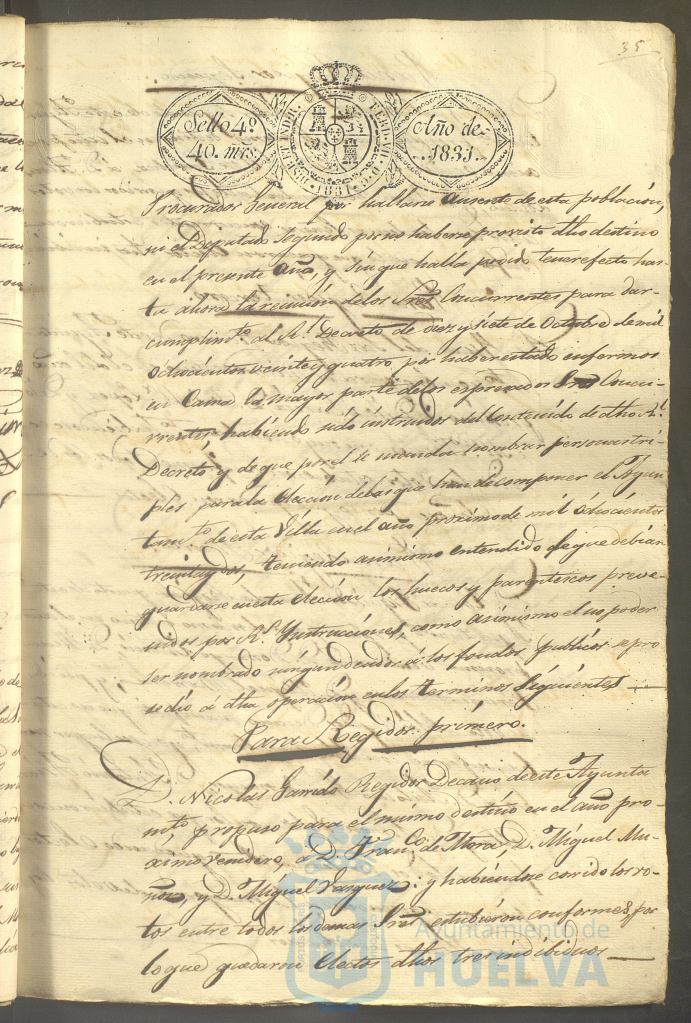 35
Sello 4º
40. mrs.
HISP. ET IND. R.
FERD. VII. D. G.
1831
Año de
1831.
Procurador General por hallarse ausente de esta población,
ni el Diputado Segundo por no haberse provisto dho destino
en el presente año, y sin que halla podido tener efecto has-
ta ahora la reunion de los Sres Concurrentes para dar
cumplimto. al Rl. Decreto de diez y siete de Octubre de mil
ochocientos veinte y quatro por haber estado enfermos
en Cama la mayor parte de los expresados Sres Concu-
rrentes habiendo sido instruidos del Contenido de dho Rl.
Decreto y de que por el se manda nombrar personas tri-
ples para la Elección de las que han de componer el Ayun
tamto. de esta Villa en el año proximo de mil ochocientos
treinta y dos, teniendo asimismo entendido de que debian
guardarse en esta elección los huecos y parentescos preve-
nidos por Rs. Ynstrucciones, como asimismo el no poder
ser nombrado ningun deudor á los fondos publicos se pro
sedio á dha operación en los terminos siguientes
Para Regidor primero.
D. Nicolas Garrido Regidor Decano de este Ayunta
mto. propuso para el mismo destino en el año pro-
ximo venidero, a D. Franco. de Mora, D. Miguel Mu-
ñoz, y D. Miguel Vasquez: y habiendose corrido los vo-
tos entre todos los demas Sres estubieron conformes por
lo que quedaron electos dhos tres individuos
Ayuntamiento de
HUELVA